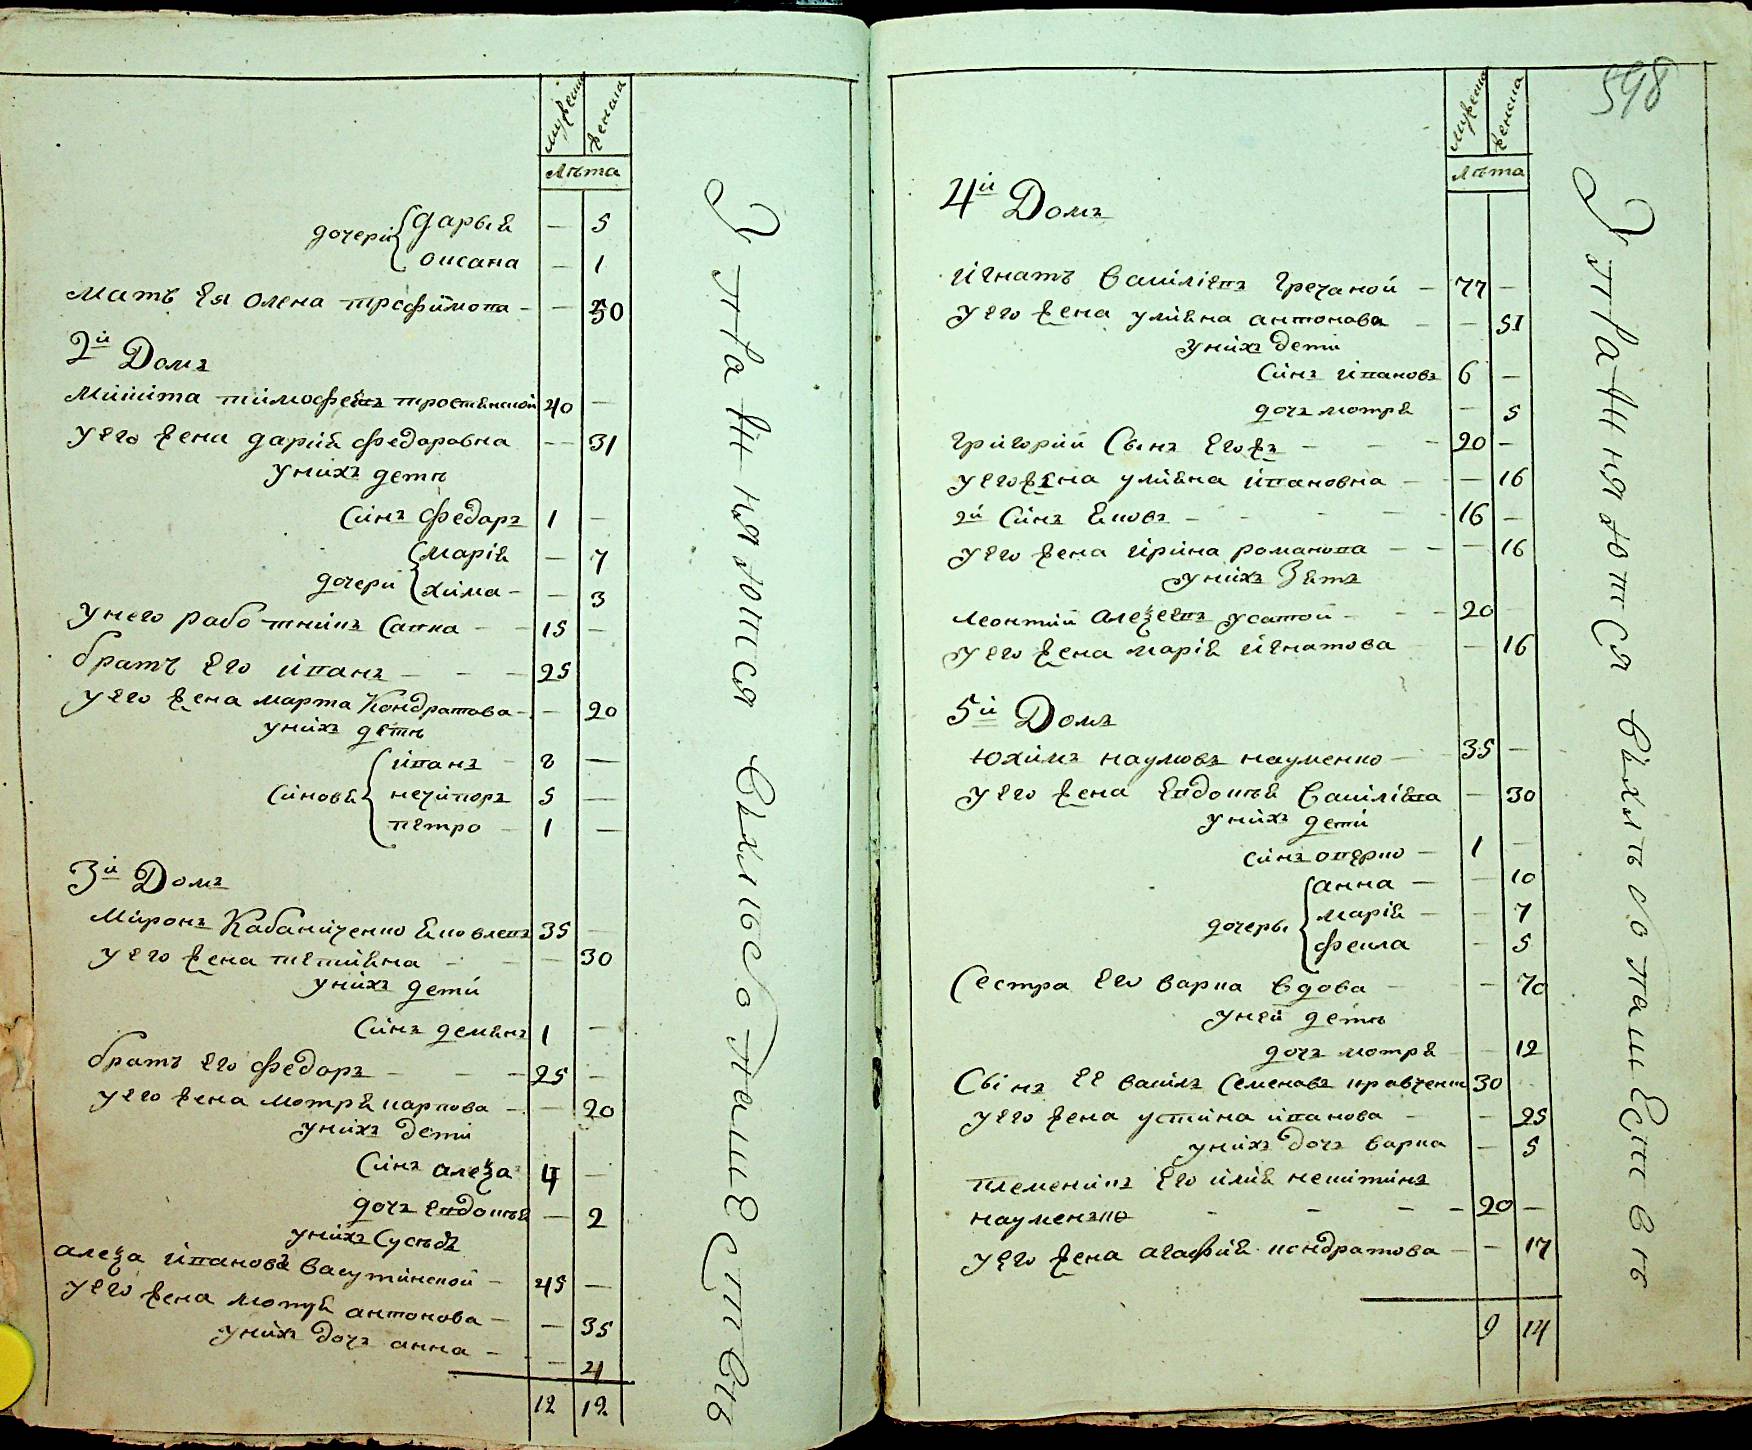 мужеска женска
лѣта
дочери дарья — 5
оксана — 1
мать Ея олена трофимова — — 50
2й Домъ
микита тимофеевъ тростянской 40 —
у его жена дарія федоровна — 31
у нихъ дети
синъ федоръ 1 —
дочери марія — 7
хима — — 3
у него работникъ савка — 15 —
братъ Его иванъ — — — 25
у его жена марта Кондратова — — 20
у нихъ дети
синовя иванъ — 8 —
нечипоръ 5 —
петро — 1 —
3й Домъ
миронъ Кабаниченко яковлевъ 35 —
у его жена тетияна — — — 30
у нихъ дети
синъ демянъ 1 —
братъ Его федоръ — — — 25 —
у его жена мотря карпова — — 20
у нихъ дети
синъ алеѯа 4 —
дочъ Евдокия — 2
у нихъ Сусѣдъ
алеѯа ивановъ васутинской — 45 —
у его жена мотря антонова — — 35
у нихъ дочъ анна — — 4
12 12
Упражняются в хлѣбопашествѣ
598
мужеска женска
лѣта
4й Домъ
игнатъ василіевъ гречаной — 77 —
у его жена улияна антонова — — 51
у нихъ дети
синъ ивановъ 6 —
дочъ мотря — 5
григорий Сынъ Его жъ — — — 20 —
у его жена улияна ивановна — — 16
2й Синъ яковъ — — — — 16 —
у его жена ирина романова — — — 16
у нихъ Зять
леонтий алеѯеевъ усатой — — — 20 —
у его жена марія игнатова — — 16
5й Домъ
юхимъ наумовъ науменко — 35 —
у его жена Евдокия василіева — 30
у нихъ дети
синъ оверко — 1 —
дочеры анна — — 10
марія — — 7
фекла — 5
Сестра Его варка вдова — — 70
у ней дети
дочъ мотря — — 12
Сынъ Ее василъ семеновъ кравченко 30
у его жена устина иванова — — 25
у нихъ дочъ варка — 5
племеникъ Его илия никитинъ
науменко — — — — 20 —
у его жена агафия кондратова — — 17
9 14
Упражняются в хлѣбопашествѣ